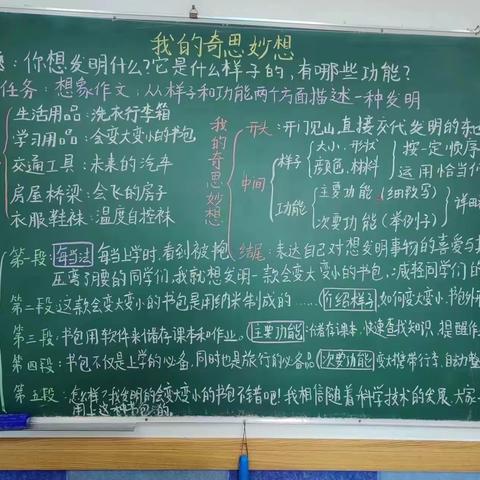 我的奇思妙想
：你想发明什么?它是什么样子的，有哪些功能?
任务：想象作文：从样子和功能两个方面描述一种发明
生活用品：洗衣行李箱
学习用品：会变大变小的书包
交通工具：未来的汽车
房屋桥梁：会飞的房子
衣服鞋袜：温度自控袜
我的奇思妙想
开门见山,直接交代发明的
中间
样子
大小、形状
颜色、材料
按一定顺序
运用恰当
功能
主要功能(细致写)
次要功能(举例子)
详
结尾：表达自己对想发明事物的喜爱与
第一段：每当法 每当上学时,看到被抱
压弯了腰的同学们,我就想发明一款会变大变小的书包,减轻同学们的
第二段：这款会变大变小的书包是用纳米制成的……介绍样子 如何变大变小、书包外
第三段：书包用软件来储存课本和作业。主要功能:储存课本、快速查找知识、提醒作
第四段：书包不仅是上学的必备,同时也是旅行的必备品 次要功能 变大携带行李、自动整
第五段：怎么样?我发明的会变大变小的书包不错吧!我相信随着科学技术的发展、大家
用上这种书包的。